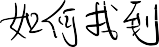 如何找到